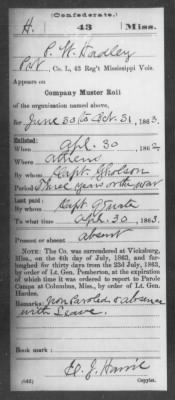 (Confederate.)
H. 43 Miss.
P. W. Hadley
Pvt, Co. I., 43 Reg't Mississippi Vols.
Appears on
Company Muster Roll
of the organization named above,
for June 30 to Oct. 31, 1863.
Enlisted:
When Apl. 30, 1862
Where Athens
By whom Capt. Gholson
Period Three years or the war
Last paid:
By whom Capt.
To what time Apl. 30, 1863.
Present or absent Absent
NOTE: The Co. was surrendered at Vicksburg,
Miss., on the 4th of July, 1863, and fur-
loughed for thirty days from the 23d July, 1863,
by order of Lt. Gen. Pemberton, at the expiration
of which time it was ordered to report to Parole
Camps at Columbus, Miss., by order of Lt. Gen.
Hardee.
Remarks: Paroled & absence
with Leave.
Book mark:
(642) Copyist.